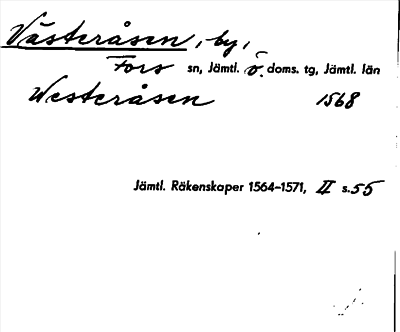 Västeråsen, by,
Fors sn, Jämtl. ö. doms. tg, Jämtl. län
Westeråsen 1568
Jämtl. Räkenskaper 1564-1571, II s. 55